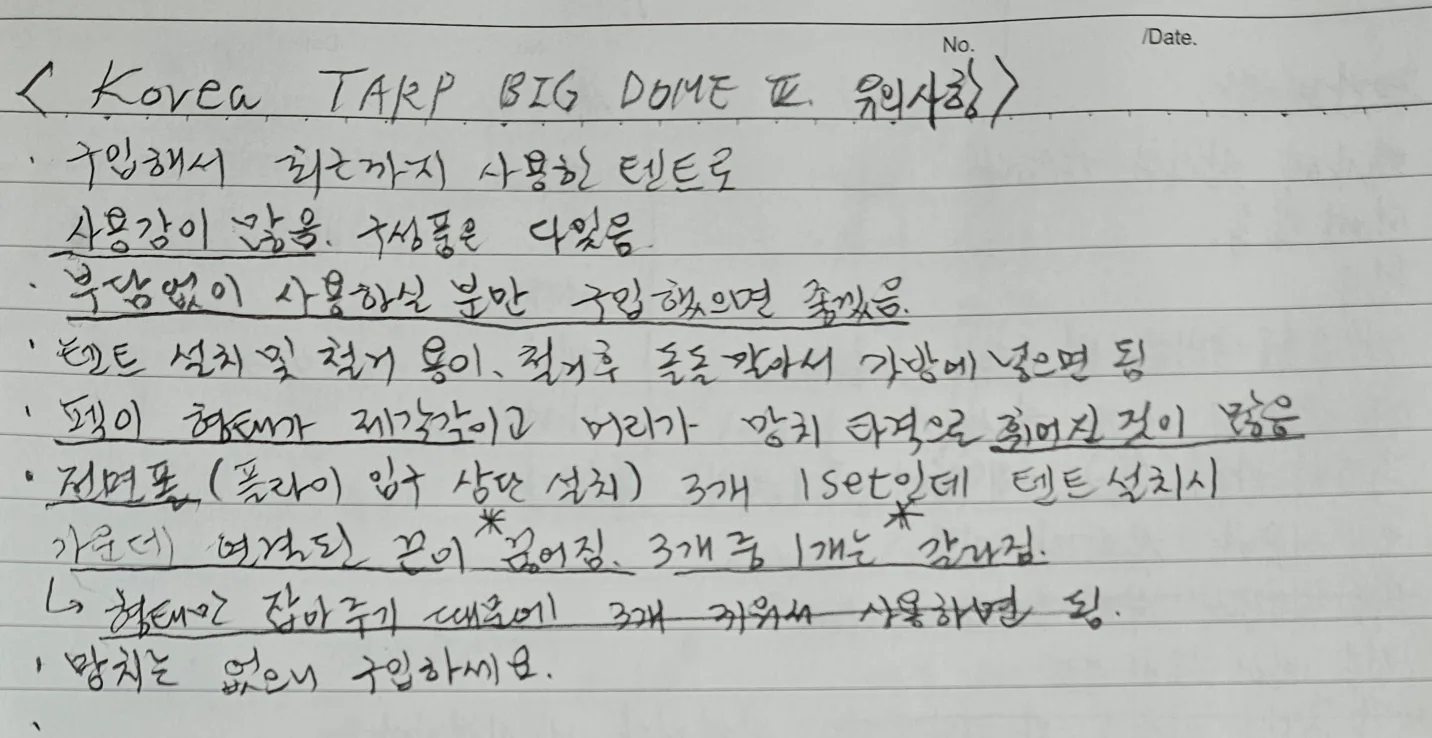 No. /Date.
< Korea TARP BIG DOME II. 유의사항>
· 구입해서 최근까지 사용한 텐트로
사용감이 많음. 구성품은 다있음
· 부담없이 사용하실 분만 구입했으면 좋겠음.
· 텐트 설치 및 철거 용이. 철거후 돌돌 말아서 가방에 넣으면 됨
· 펙이 형태가 제각각이고 머리가 망치 타격으로 휘어진 것이 많음
· 전면폴 (플라이 입구 상단 설치) 3개 1set인데 텐트 설치시
가운데 연결된 끈이 *끊어짐. 3개 중 1개는 *갈라짐.
↳ 형태만 잡아주기 때문에 3개 끼워서 사용하면 됨.
· 망치는 없으니 구입하세요.
·